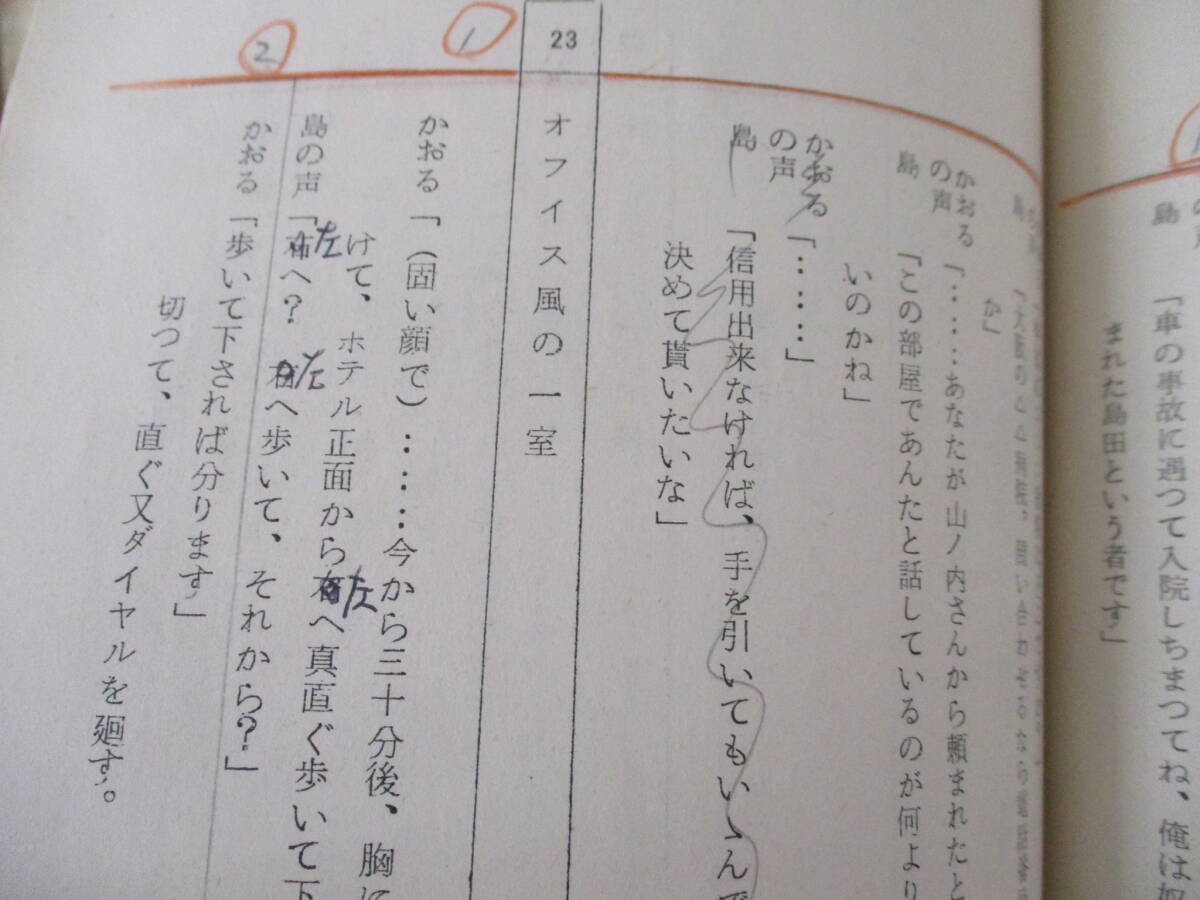 島　「車の事故に遇つて入院しちまつてね、俺は奴
まれた島田という者です」
か」
かおるの声　「‥‥あなたが山ノ内さんから頼まれたと
島　「この部屋であんたと話しているのが何より
いのかね」
かおるの声　「‥‥」
島　「信用出来なければ、手を引いてもいゝんで
決めて貰いたいな」
23　オフイス風の一室
①
かおる　「（固い顔で）‥‥今から三十分後、胸に
けて、ホテル正面から右左へ真直ぐ歩いて下
②
島の声　「右左へ？　右左へ歩いて、それから？」
かおる　「歩いて下されば分ります」
切つて、直ぐ又ダイヤルを廻す。